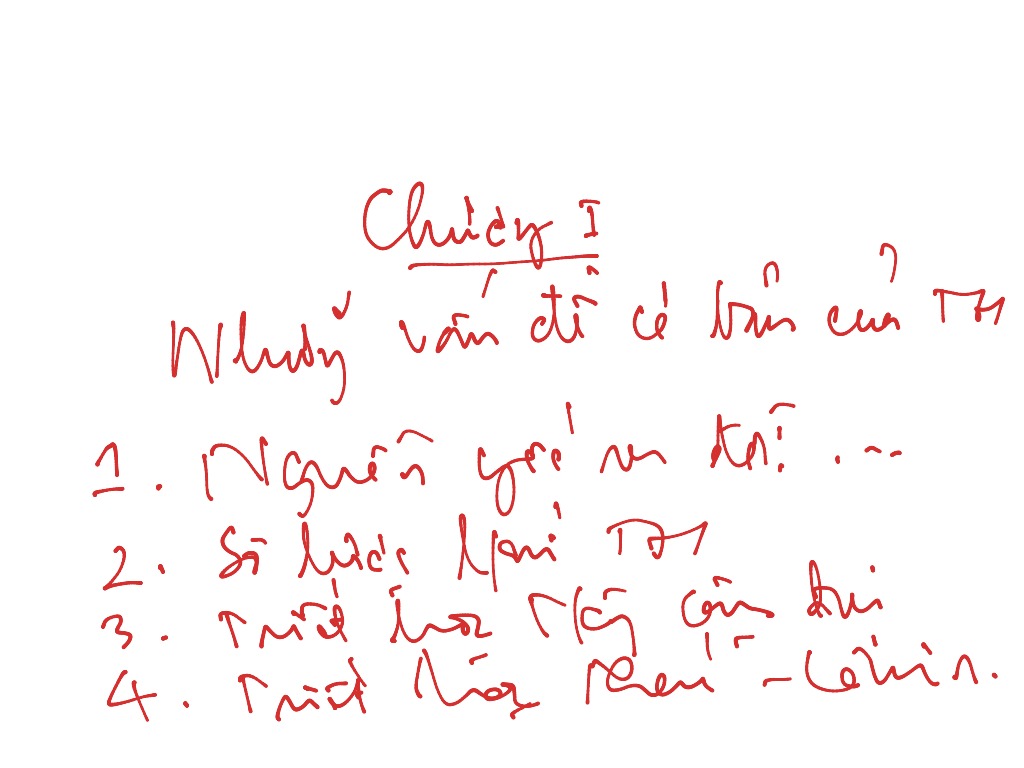 Chương I
Những vấn đề cơ bản của TH
1. Nguồn gốc ra đời ...
2. Sơ lược TH
3. Triết học Tây cận đại
4. Triết học Mác - Lênin.